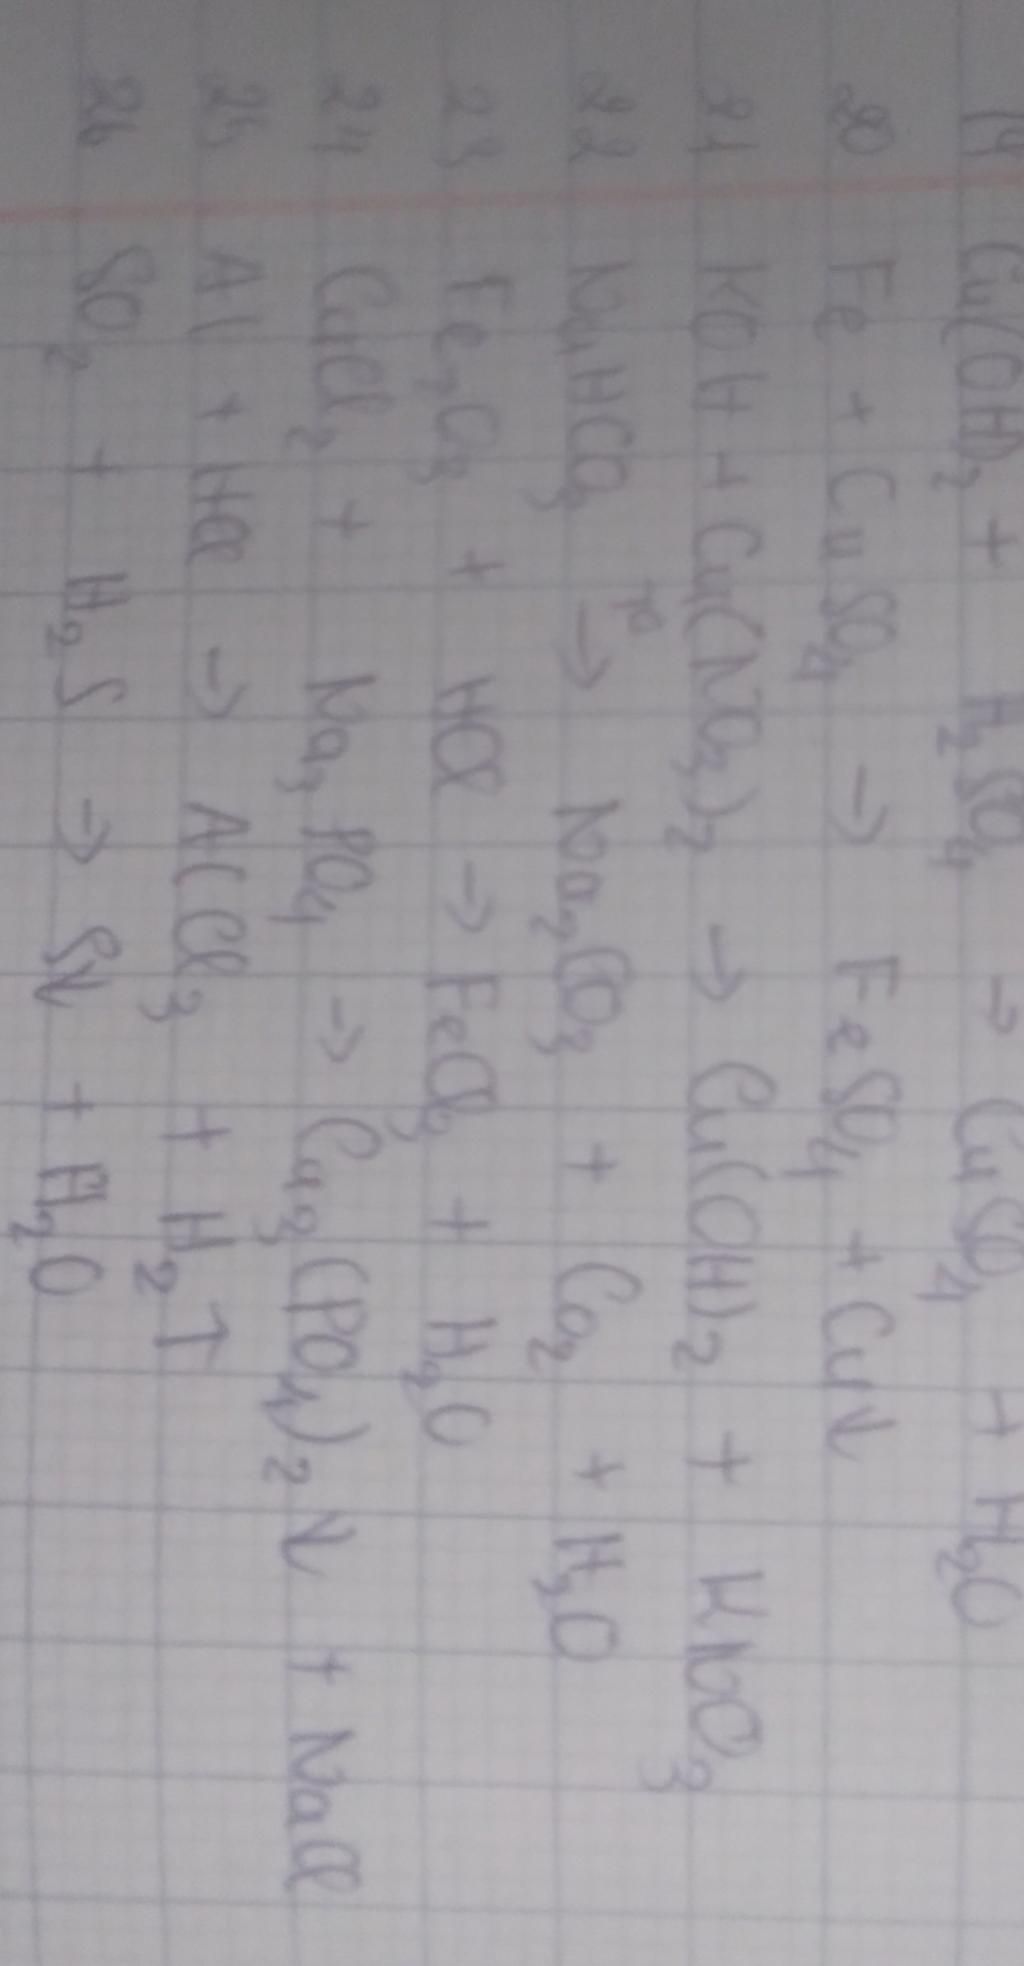 19 Cu(OH)₂ + H₂SO₄ → CuSO₄ + H₂O
20 Fe + CuSO₄ → FeSO₄ + Cu↓
21 KOH + Cu(NO₃)₂ → Cu(OH)₂ + KNO₃
22 NaHCO₃ t°→ Na₂CO₃ + CO₂ + H₂O
23 Fe₂O₃ + HCl → FeCl₃ + H₂O
24 CuCl₂ + Na₃PO₄ → Cu₃(PO₄)₂↓ + NaCl
25 Al + HCl → AlCl₃ + H₂↑
26 SO₂ + H₂S → S↓ + H₂O